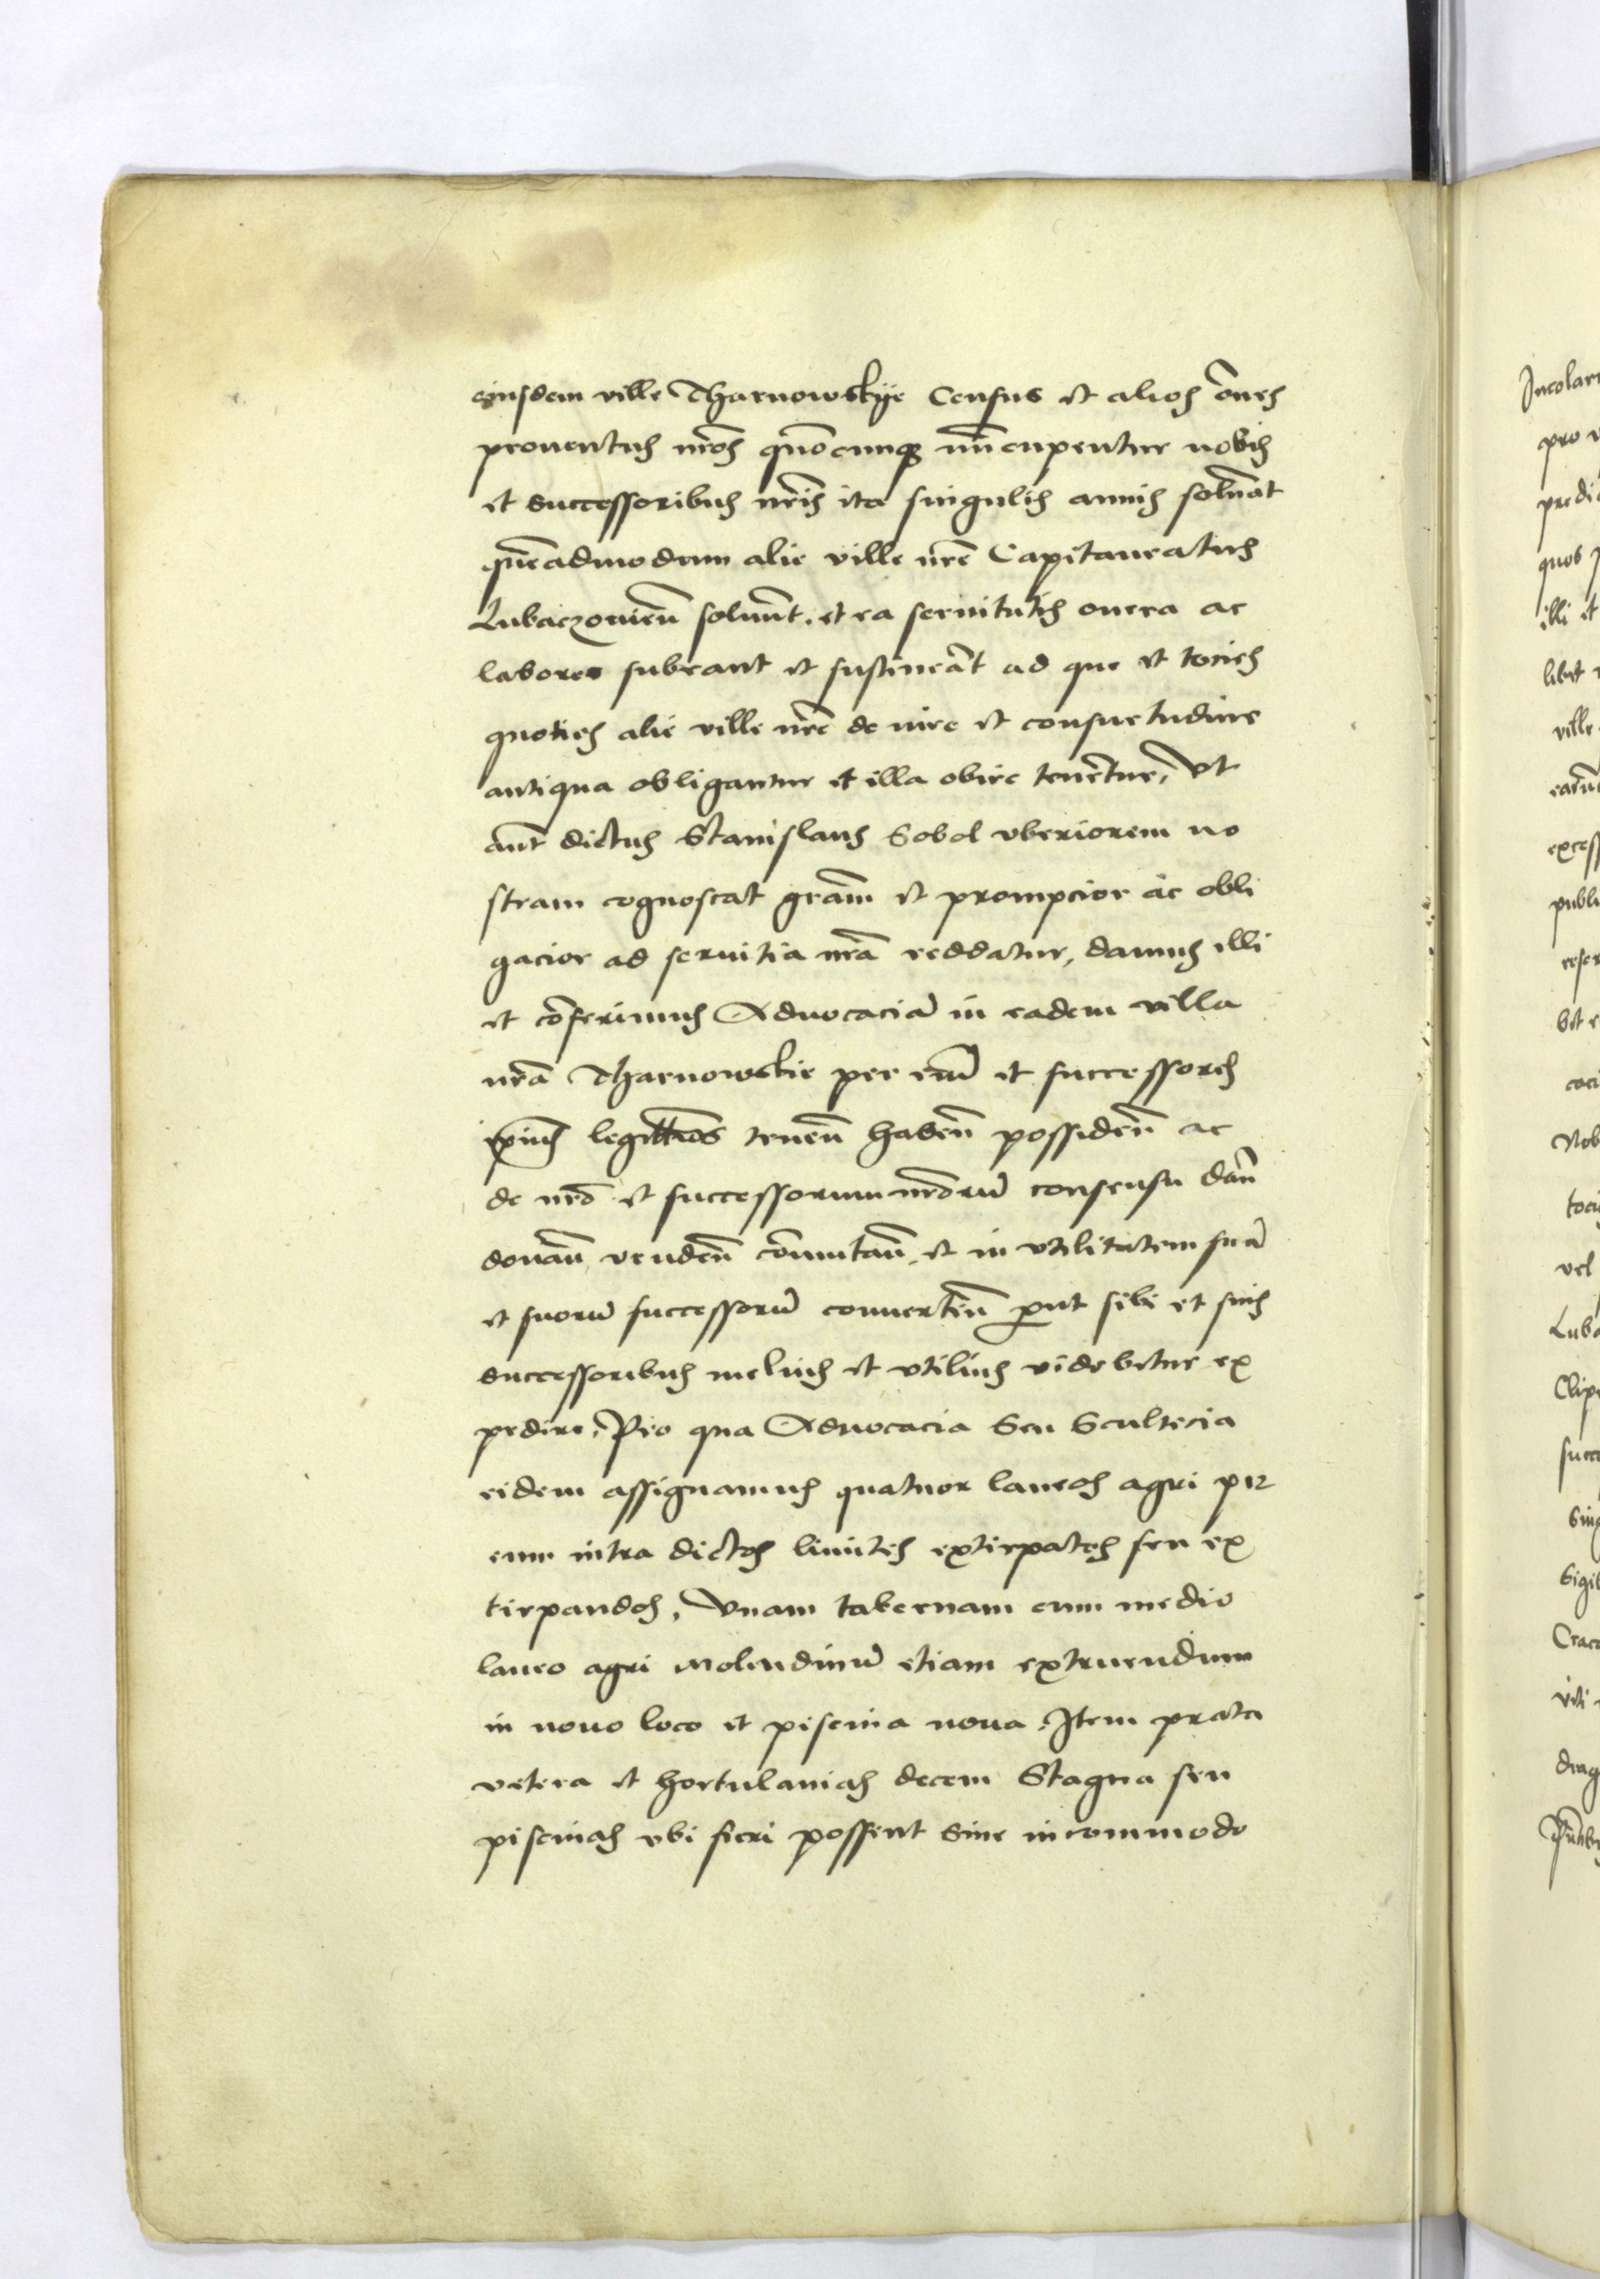 eiusdem ville Tharnowskije Census et alios õnes
prouentus nrõs quõcunq nũcupentur nobis
et successoribus nrĩs ita singulis annis soluãt
quẽadmodum alie ville nrẽ Capitaneatus
Lubaczouieñ soluũt. et ea seruitutis onera ac
labores subeant et sustineãt ad que et tocies
quoties alie ville nrẽ de iure et consuetudine
antiqua obligantur et illa obire tenẽtur, Vt
aũt dictus Stanislaus Sobol vberiorem no
stram cognoscat grãm et prompcior ac obli
gacior ad seruitia nrã reddatur, damus illi
et cõferimus Aduocaciã in eadem villa
nrã Tharnowskie per eũ et successores
ipius legittimos teneñ habeñ possideñ ac
de nrõ et successorum nrõrũ consensu dañ
donañ vendeñ cõmutañ, et in vtilitatem suã
et suorũ successorũ conuerteñ put sibi et suis
successoribus melius et vtilius videbitur ex
pedire, Pro qua Aduocacia Seu Scultecia
eidem assignamus quatuor laneos agri per
eum intra dictos limites extirpatos seu ex
tirpandos, Vnam tabernam cum medio
laneo agri Molendinũ etiam extruendum
in nouo loco et piscina noua, Item prata
vetera et hortulanias decem Stagna seu
piscinas vbi fieri possent Sine incommodo
Incolar
pro
predi
quos
illi et
libet
ville
earũ
excess
publi
reser
bit e
caci
Nob
toci
vel
Luba
Clipe
succ
Sing
Sigil
Craco
viti